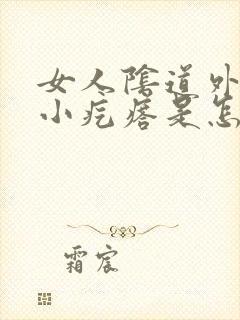 女人陰道外
小疙瘩是怎
霜宸